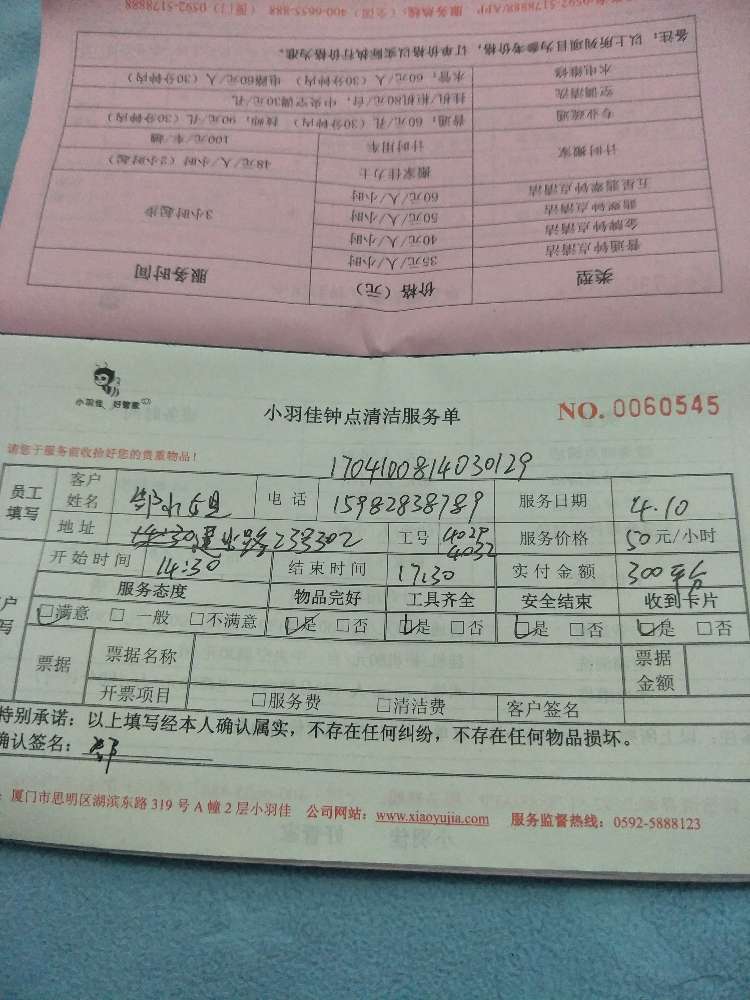 服务热线：400-6655-888（全国） 0592-5178888（厦门）
备注：以上所列项目为参考价格，订单价格以实际执行价格为准。
类型 价格（元） 服务时间
普通钟点清洁 35元/人/小时 3小时起步
金牌钟点清洁 40元/人/小时
翡翠钟点清洁 50元/人/小时
五星翡翠钟点清洁 60元/人/小时
计时搬家 搬家佳力士 48元/人/小时（2小时起）
计时用车 100元/车/趟
专业疏通 普通，60元/孔（30分钟内） 技师，90元/孔（30分钟内）
空调清洗 挂机/柜机80元/台，中央空调30元/孔
水电维修 水管，60元/人（30分钟内） 电路60元/人（30分钟内）
小羽佳 好管家
小羽佳钟点清洁服务单
NO. 0060545
请您于服务前收拾好您的贵重物品！
1704100814030129
员工填写 客户姓名 电话 15982838789 服务日期 4.10
地址 238302 工号 4029 4032 服务价格 50元/小时
开始时间 14:30 结束时间 17:30 实付金额 300
服务态度 物品完好 工具齐全 安全结束 收到卡片
□满意 □一般 □不满意 □是 □否 □是 □否 □是 □否 □是 □否
票据 票据名称 票据金额
开票项目 □服务费 □清洁费 客户签名
特别承诺：以上填写经本人确认属实，不存在任何纠纷，不存在任何物品损坏。
确认签名：
厦门市思明区湖滨东路319号A幢2层小羽佳 公司网站：www.xiaoyujia.com 服务监督热线：0592-5888123